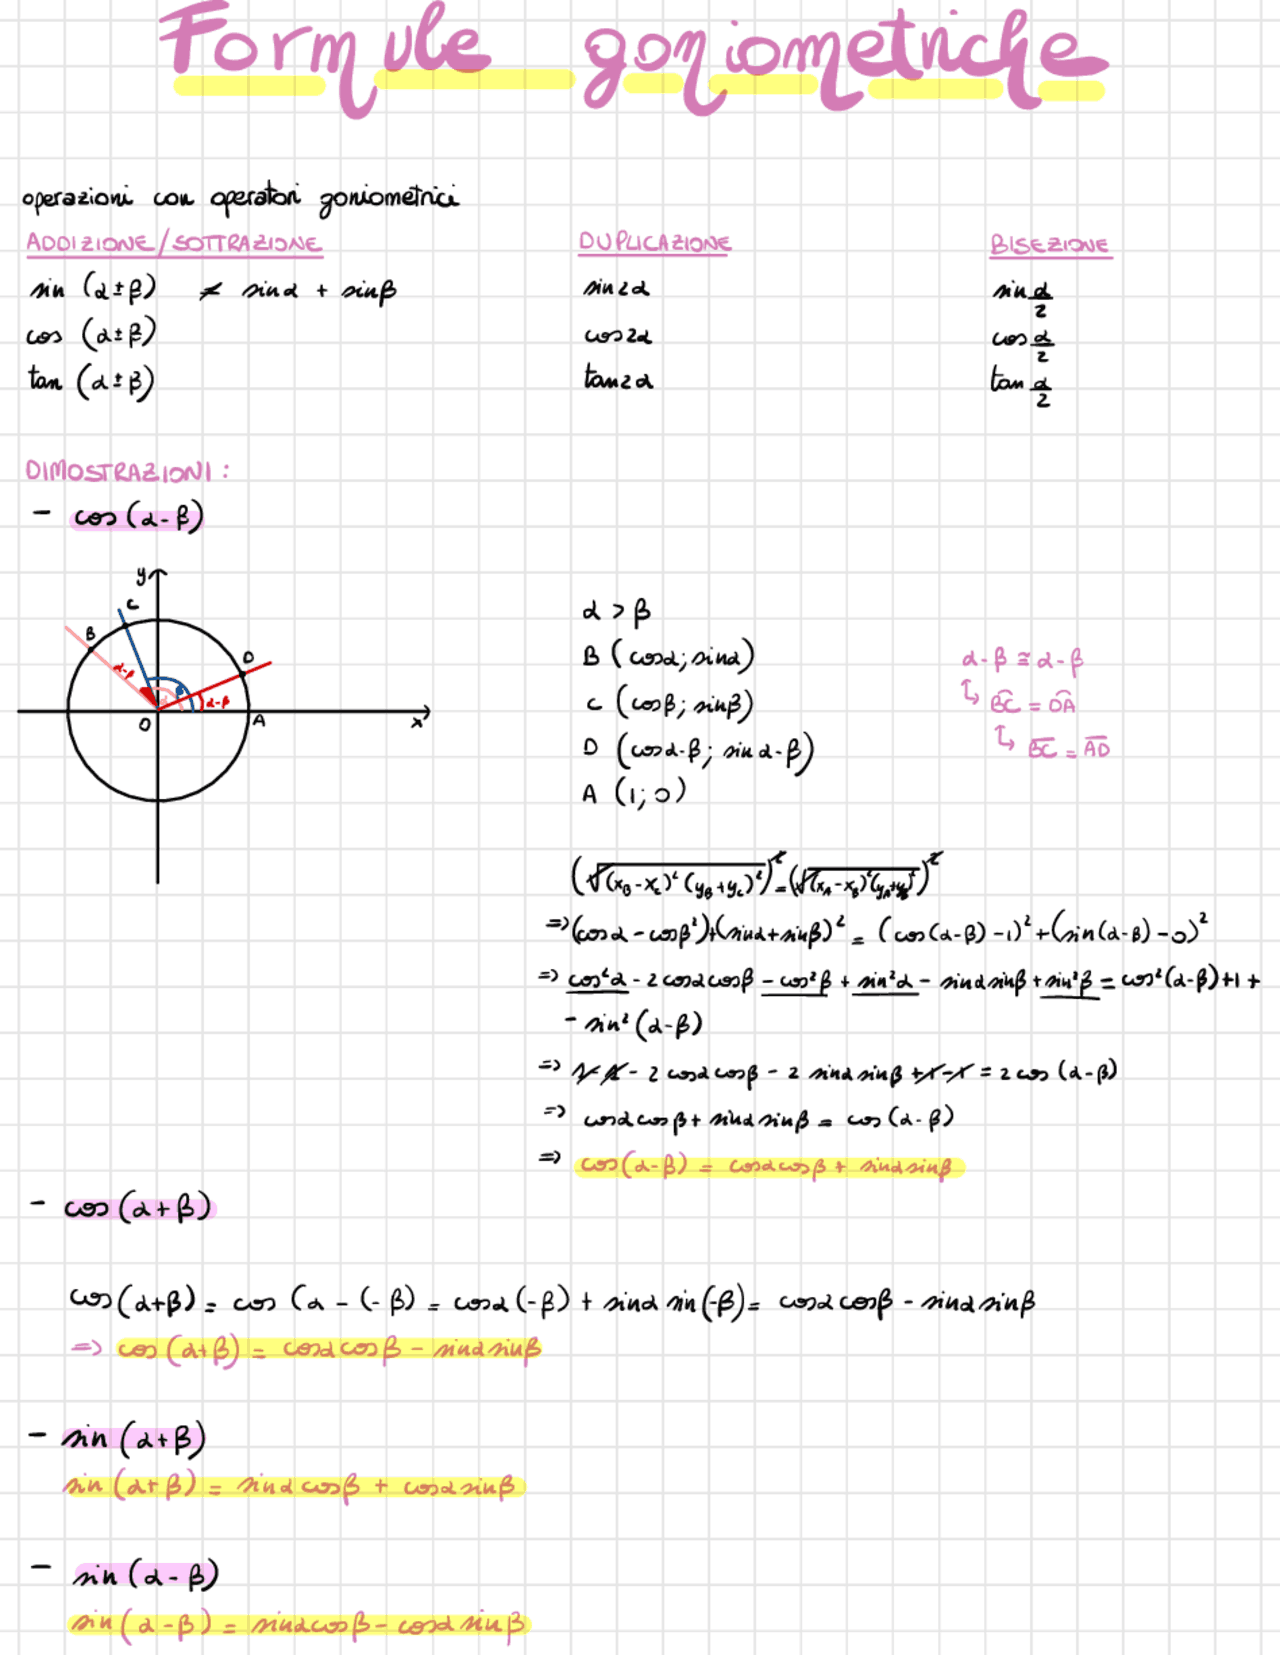 Formule goniometriche
operazioni con operatori goniometrici
ADDIZIONE/SOTTRAZIONE
sin (α±β) ≠ sinα + sinβ
cos (α±β)
tan (α±β)
DUPLICAZIONE
sin2α
cos2α
tan2α
BISEZIONE
sin α/2
cos α/2
tan α/2
DIMOSTRAZIONI:
- cos(α-β)
y
C
B
D
α-β
β
α-β
O
A
x
α > β
B (cosα; sinα)
C (cosβ; sinβ)
D (cosα-β; sinα-β)
A (1; 0)
α-β ≅ α-β
↳ BC = DA
↳ BC = AD
(√(xB-xC)² (yB+yC)²)² = (√(xA-xB)² (yA+yB)²)²
=> (cosα - cosβ²)+(sinα+sinβ)² = (cos(α-β) -1)² + (sin(α-β) - 0)²
=> cos²α - 2cosαcosβ - cos²β + sin²α - sinαsinβ + sin²β = cos²(α-β)+1 +
- sin²(α-β)
=> 1-1 - 2cosαcosβ - 2 sinαsinβ +1-1 = 2cos (α-β)
=> cosαcosβ + sinαsinβ = cos (α-β)
=> cos(α-β) = cosαcosβ + sinαsinβ
- cos(α+β)
cos(α+β) = cos (α - (-β) = cosα(-β) + sinα sin(-β) = cosαcosβ - sinαsinβ
=> cos(α+β) = cosαcosβ - sinαsinβ
- sin(α+β)
sin(α+β) = sinαcosβ + cosαsinβ
- sin(α-β)
sin(α-β) = sinαcosβ - cosαsinβ